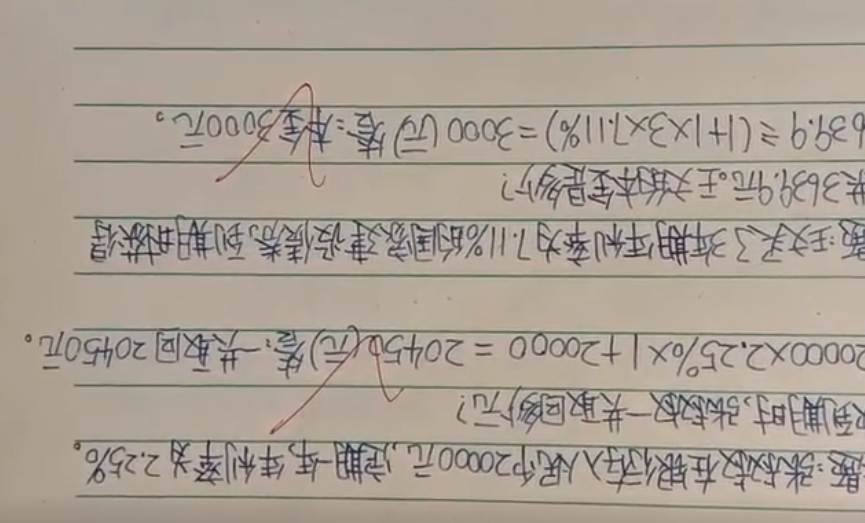 题:张叔叔在银行存入人民币20000元,定期一年,年利率为2.25%。
到期时,张叔叔一共取回多少元?
20000×2.25%×1+20000=20450(元)答:一共取回20450元。
题:王文买了3年期年利率为7.11%的国家建设债券,到期时获得
共3639.9元。王文的本金是多少?
639.9÷(1+1×3×7.11%)=3000(元)答:本金3000元。